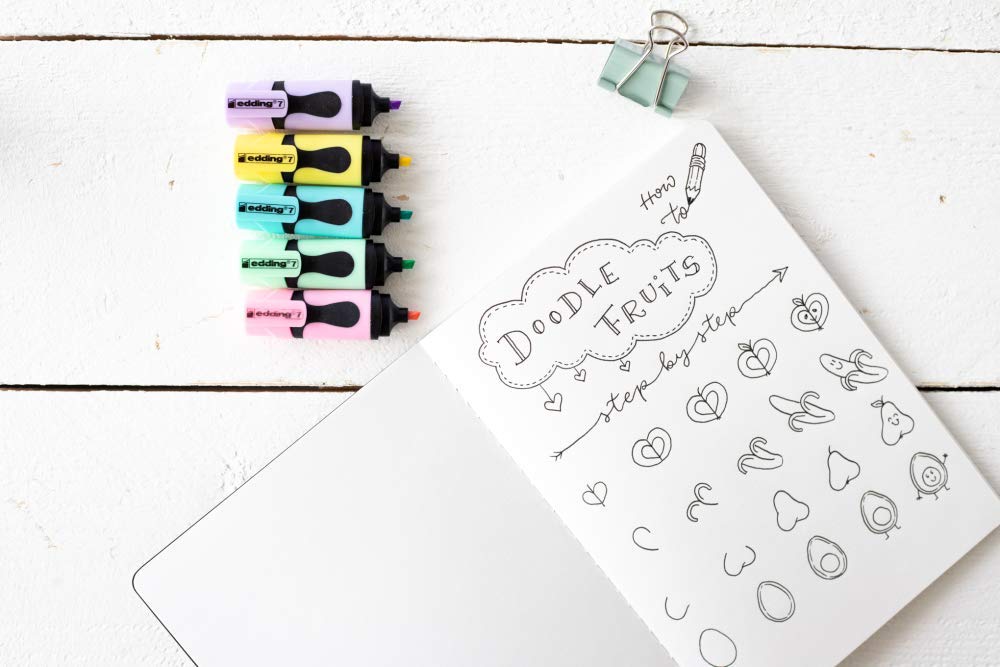 edding® 7
edding® 7
edding® 7
edding® 7
edding® 7
How
to
DOODLE
FRUITS
step by step